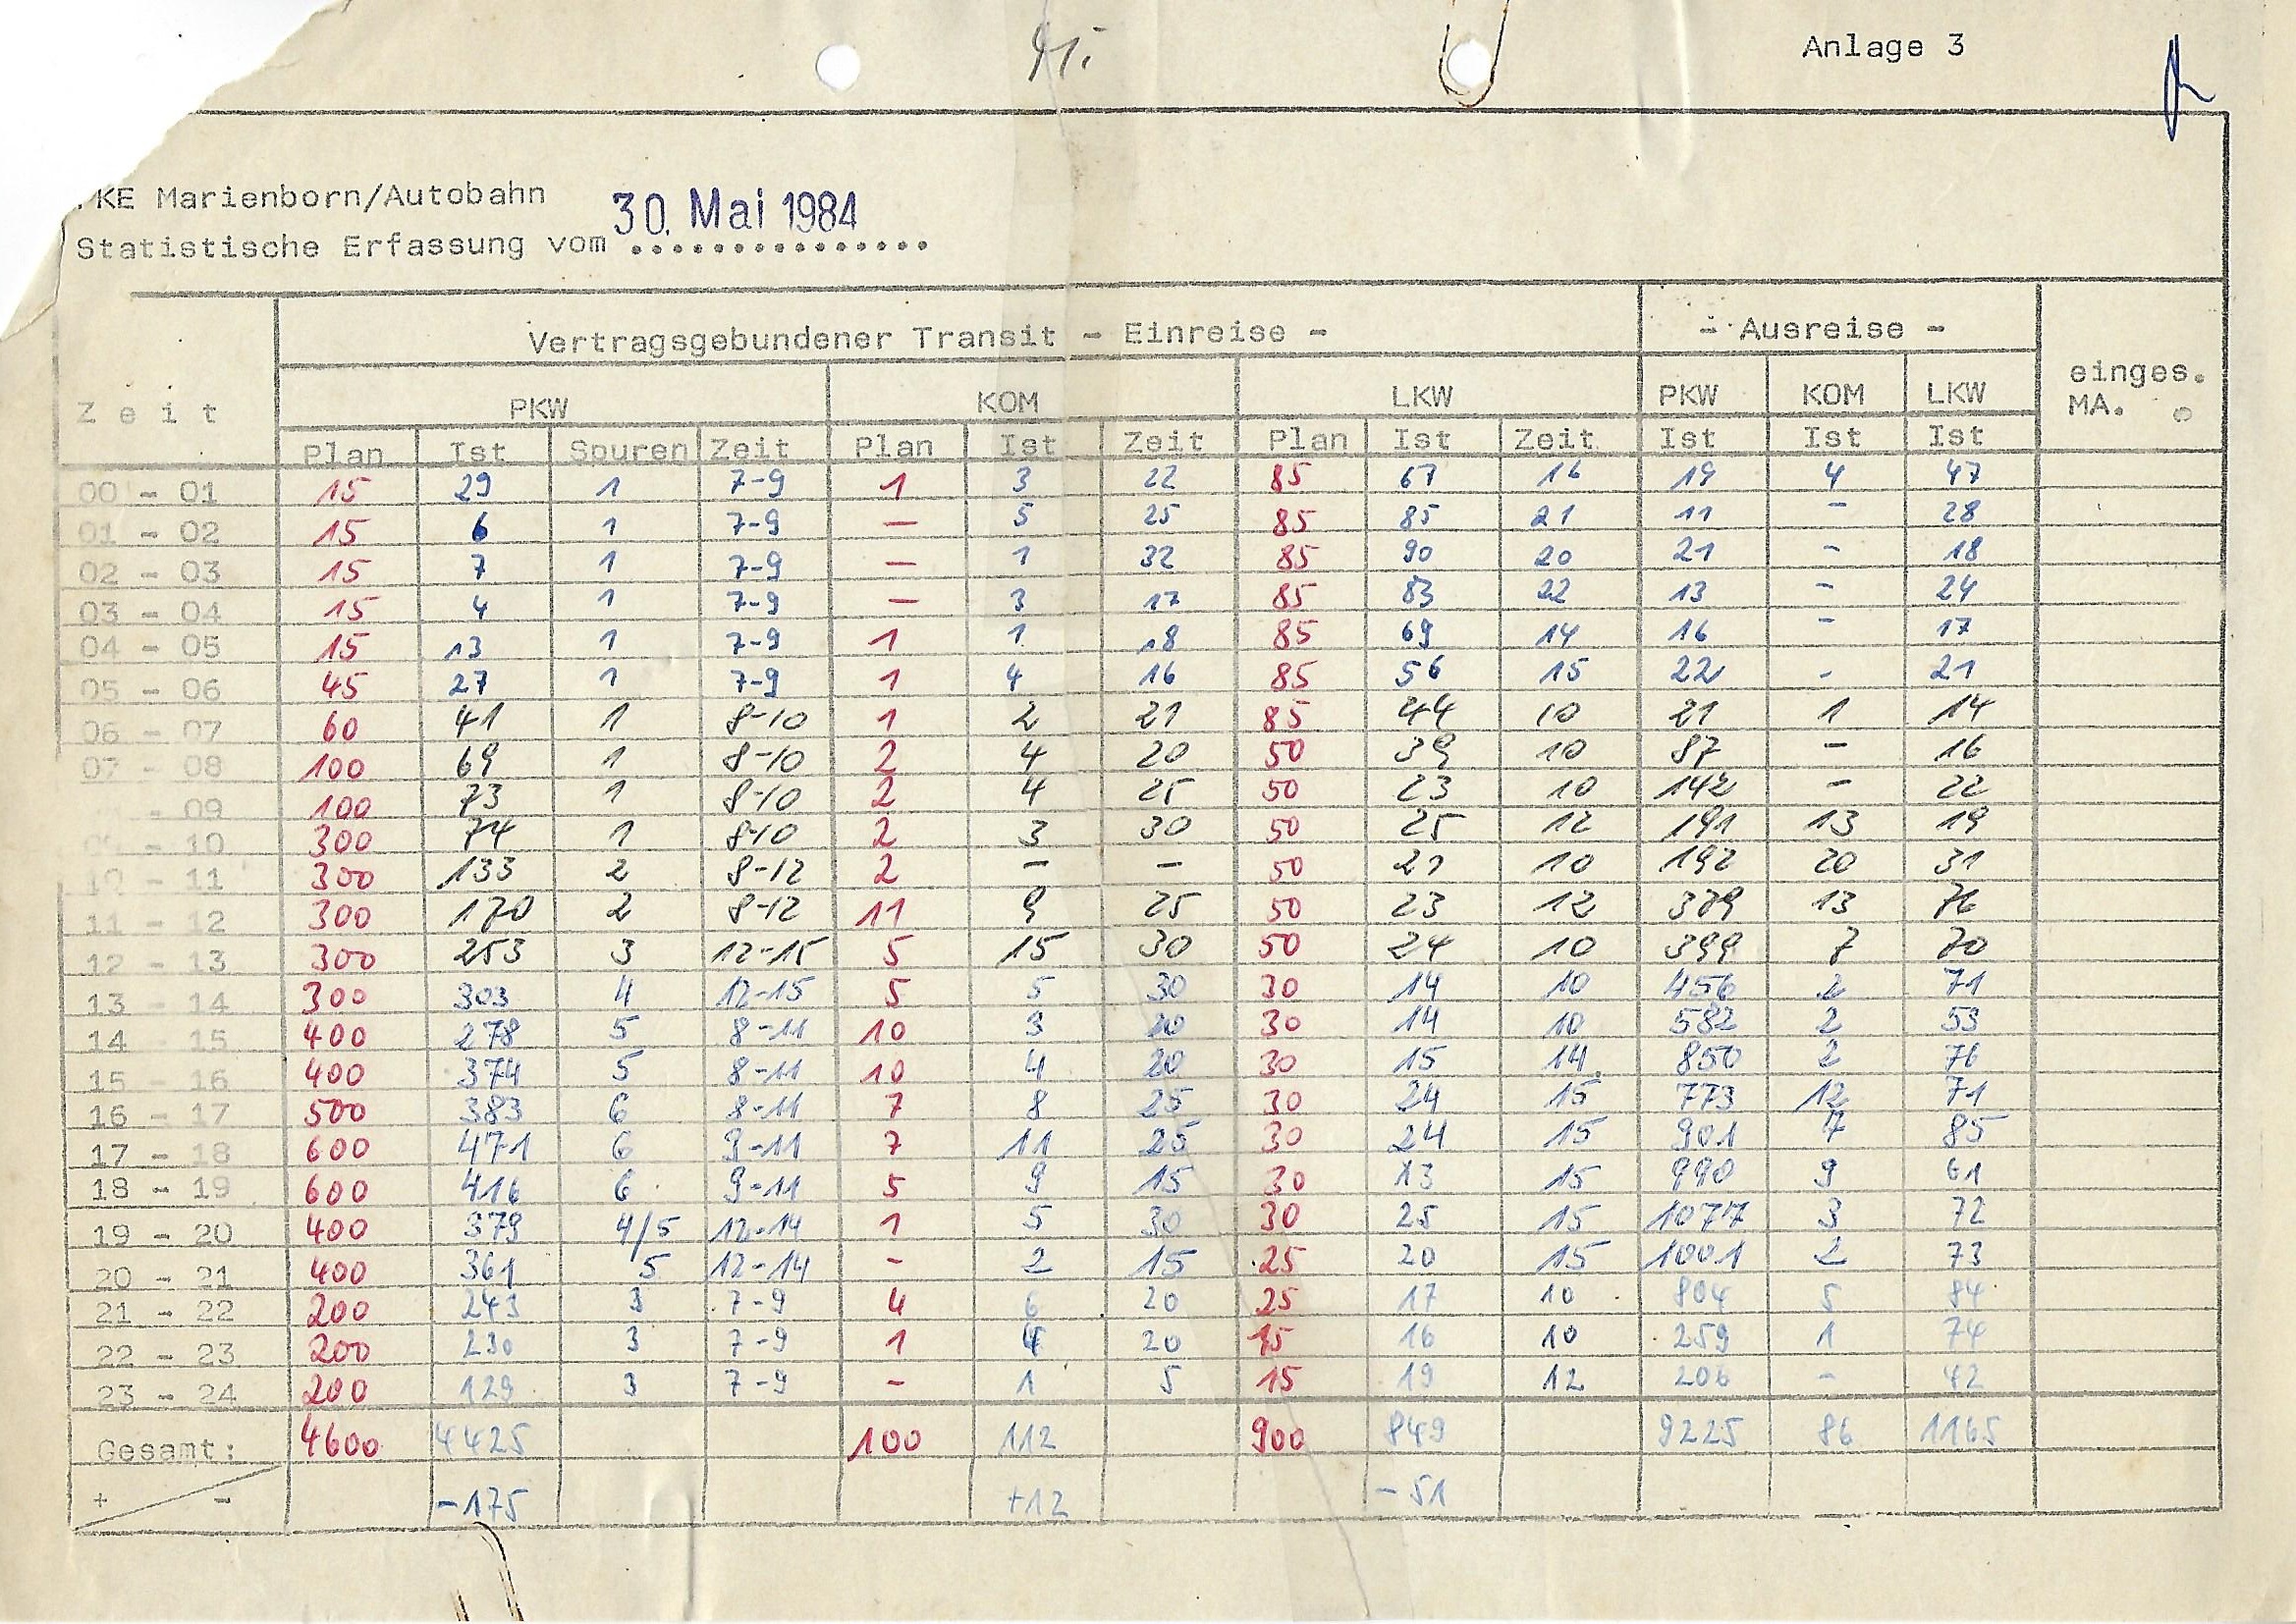 Anlage 3
PKE Marienborn/Autobahn
30. Mai 1984
Statistische Erfassung vom ...............
Vertragsgebundener Transit - Einreise - - Ausreise -
Zeit PKW KOM LKW PKW KOM LKW einges. MA.
Plan Ist Spuren Zeit Plan Ist Zeit Plan Ist Zeit Ist Ist Ist
00 - 01 15 29 1 7-9 1 3 22 85 67 16 19 4 47
01 - 02 15 6 1 7-9 — 5 25 85 85 21 11 - 28
02 - 03 15 7 1 7-9 — 1 32 85 90 20 21 - 18
03 - 04 15 4 1 7-9 — 3 17 85 83 22 13 - 24
04 - 05 15 13 1 7-9 1 1 18 85 69 14 16 - 17
05 - 06 45 27 1 7-9 1 4 16 85 56 15 22 - 21
06 - 07 60 41 1 8-10 1 2 21 85 44 10 21 1 14
07 - 08 100 69 1 8-10 2 4 20 50 39 10 87 - 16
- 09 100 73 1 8-10 2 4 25 50 23 10 142 - 22
09 - 10 300 74 1 8-10 2 3 30 50 25 12 191 13 19
10 - 11 300 133 2 8-12 2 - - 50 21 10 192 20 31
11 - 12 300 170 2 8-12 11 9 25 50 23 12 13 76
12 - 13 300 253 3 12-15 5 15 30 50 24 10 399 7 70
13 - 14 300 303 4 12-15 5 5 30 30 14 10 456 2 71
14 - 15 400 278 5 8-11 10 3 20 30 14 10 582 2 53
15 - 16 400 374 5 8-11 10 4 20 30 15 14 850 2 76
16 - 17 500 383 6 8-11 7 8 25 30 24 15 773 12 71
17 - 18 600 471 6 9-11 7 11 25 30 24 15 901 7 85
18 - 19 600 416 6 9-11 5 9 15 30 13 15 990 9 61
19 - 20 400 379 4/5 12-14 1 5 30 30 25 15 1077 3 72
20 - 21 400 361 5 12-14 - 2 15 25 20 15 1001 2 73
21 - 22 200 243 3 7-9 4 6 20 25 17 10 804 5 84
22 - 23 200 230 3 7-9 1 4 20 15 16 10 259 1 74
23 - 24 200 129 3 7-9 - 1 5 15 19 12 206 - 42
Gesamt: 4600 4425 100 112 900 849 9225 86 1165
+ - -175 +12 -51